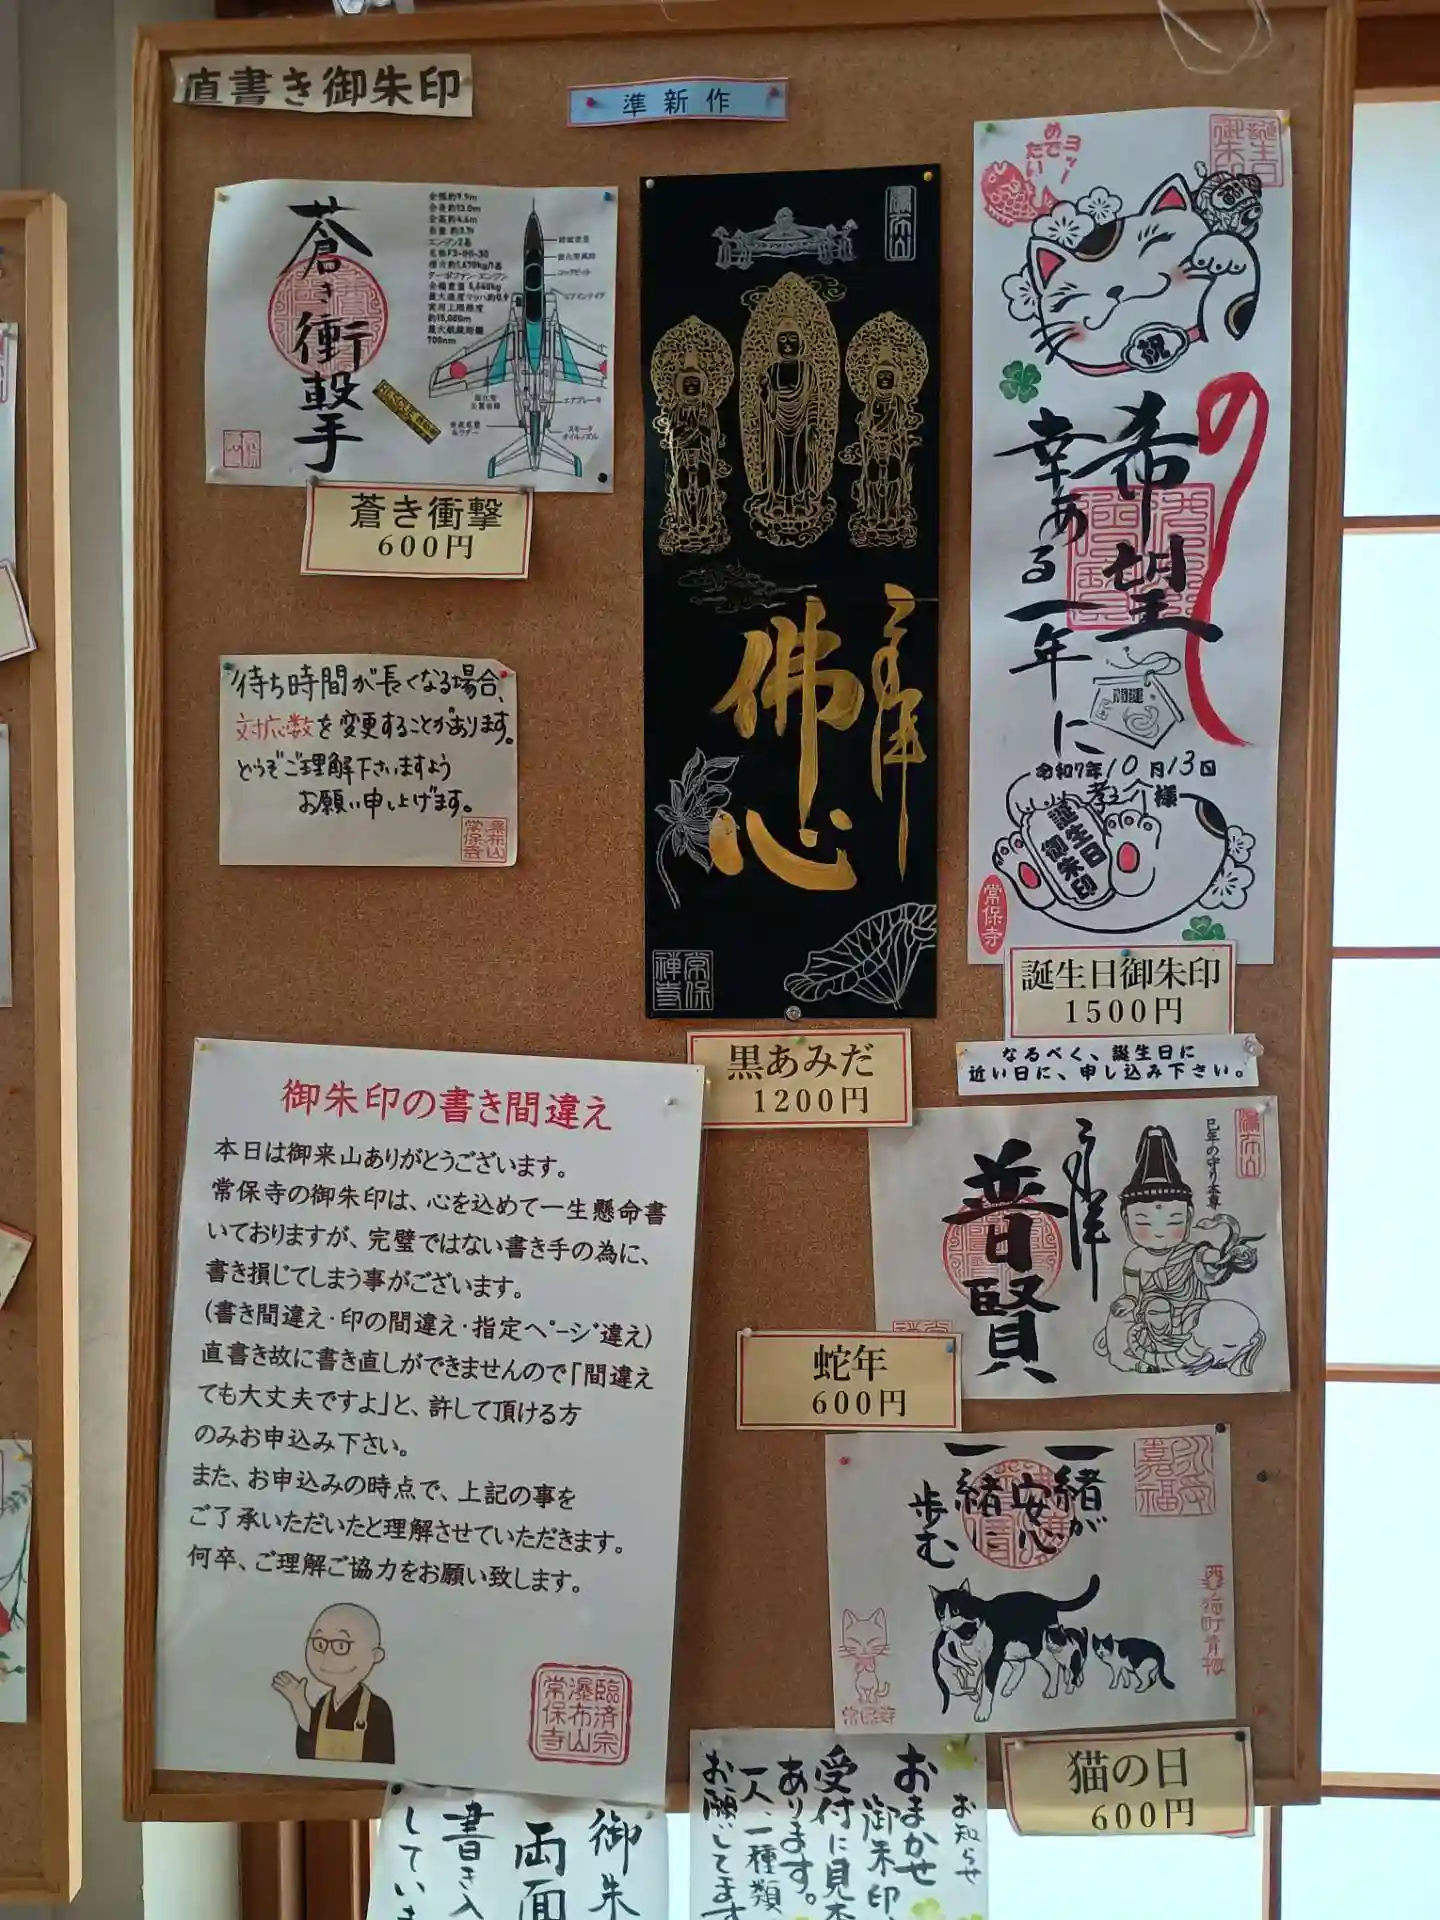 直書き御朱印
準新作
蒼き衝撃
全幅約9.9m
全長約13.0m
全高約4.6m
エンジン2基
ターボファン・エンジン
最大速度マッハ約0.9
実用上限限度
約15,000m
最大航続距離
700nm
コックピット
エアインテイク
エアブレーキ
スモーク
オイルノズル
蒼き衝撃
600円
待ち時間が長くなる場合、
対応数を変更することがあります。
どうぞご理解下さいますよう
お願い申し上げます。
瀑布山
常保寺
瀑布山
奉拝
佛心
常保
禅寺
黒あみだ
1200円
誕生日
御朱印
ヨッ
めで
たい
祝
希望の
幸ある一年に
開運
令和7年10月13日
孝之介様
誕生日
御朱印
常保寺
誕生日御朱印
1500円
なるべく、誕生日に
近い日に、申し込み下さい。
御朱印の書き間違え
本日は御来山ありがとうございます。
常保寺の御朱印は、心を込めて一生懸命書
いておりますが、完璧ではない書き手の為に、
書き損じてしまう事がございます。
(書き間違え・印の間違え・指定ページ違え)
直書き故に書き直しができませんので「間違え
ても大丈夫ですよ」と、許して頂ける方
のみお申込み下さい。
また、お申込みの時点で、上記の事を
ご了承いただいたと理解させていただきます。
何卒、ご理解ご協力をお願い致します。
臨済宗
瀑布山
常保寺
瀑布山
巳年の守り本尊
奉拝
普賢
蛇年
600円
一緒が
安心
一緒に
歩む
猫町青梅
常保寺
猫の日
600円
お知らせ
おまかせ
御朱印
受付に見本
あります。
一人、一種類
お願いしてます
御朱
両面
書き入
していま